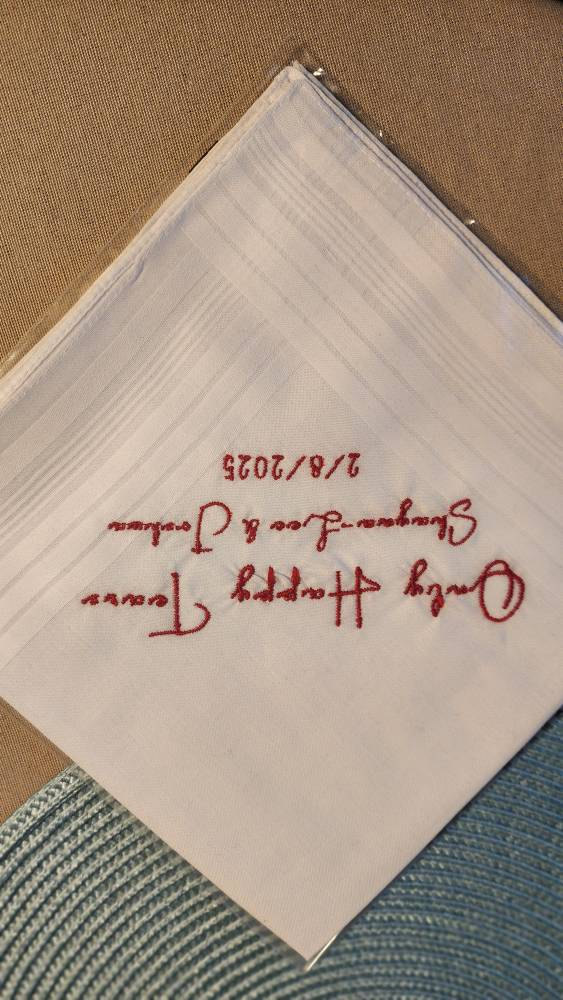 Only Happy Tears
Shaynna-Lee & Joshua
2/8/2025